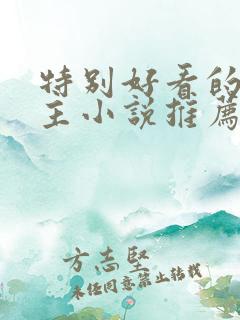 特别好看的
主小說推薦
方志堅
未经同意禁止转载